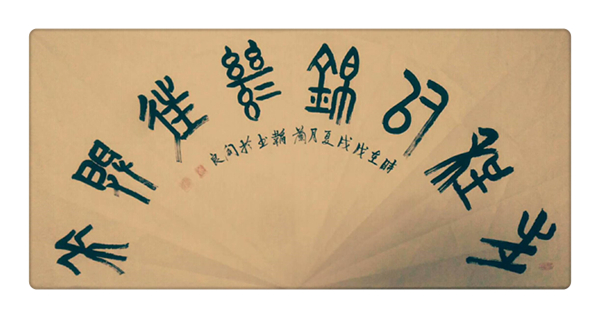 前程似錦繼往開來
時在戊戌夏月